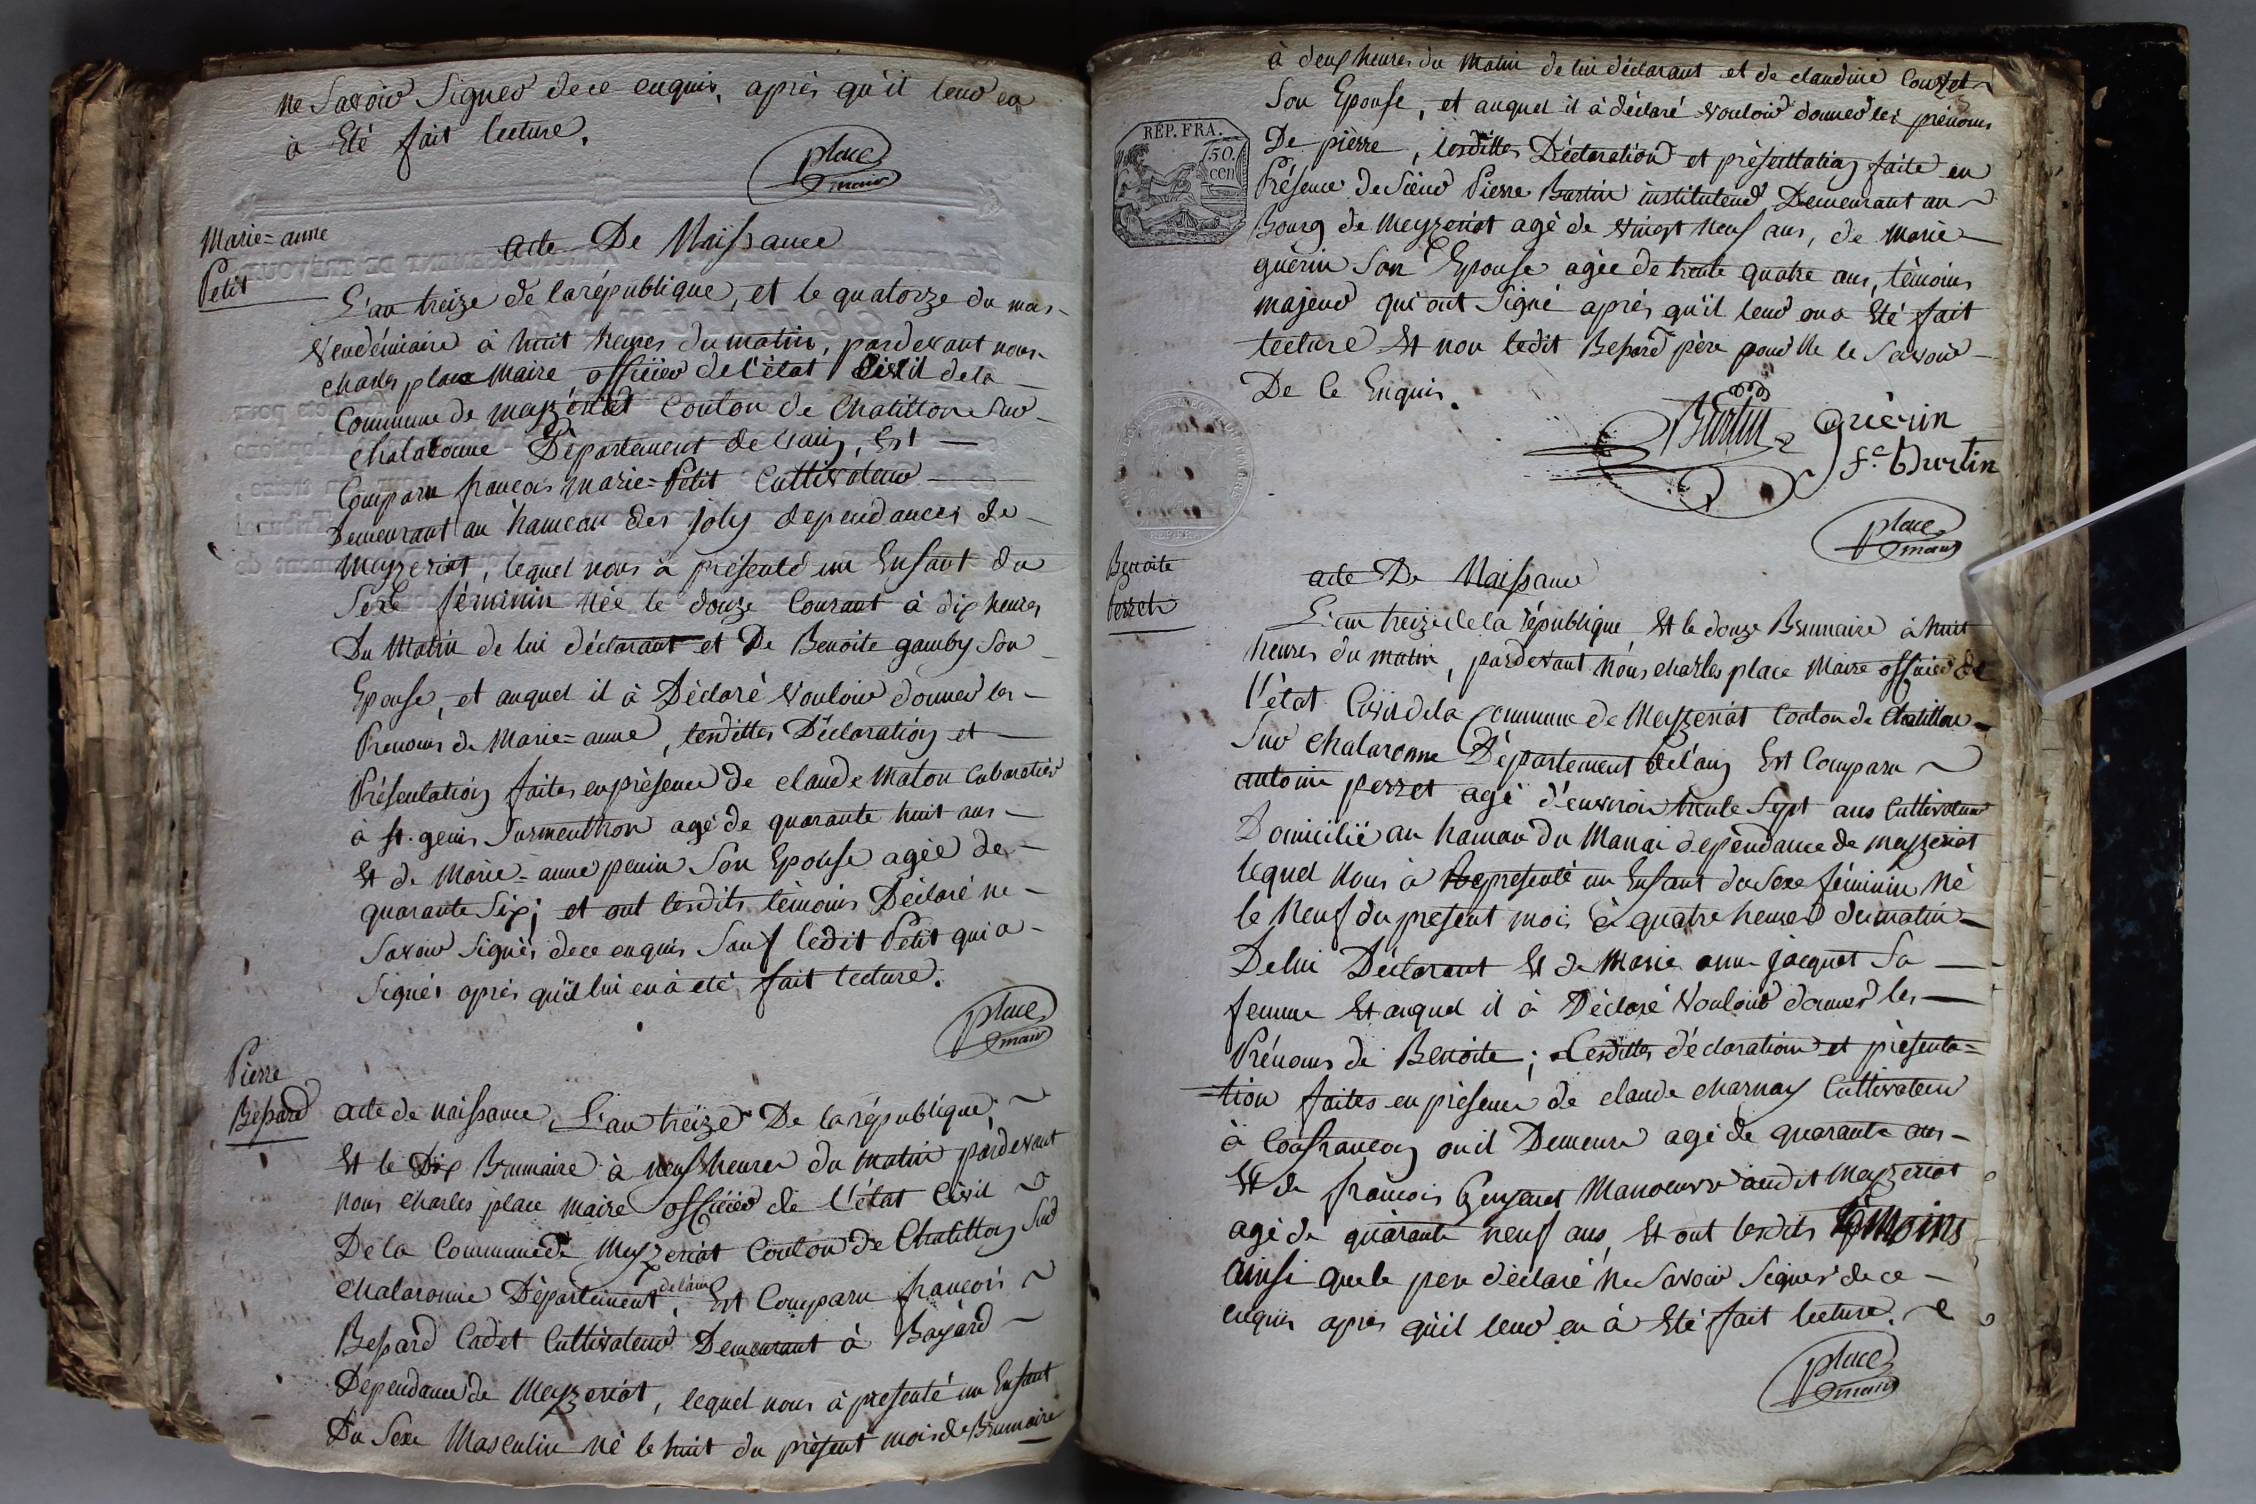 ne savoir signer de ce enquis, après qu'il leur en
à été fait lecture.
place
maire
Marie=anne
Petit
acte De Naissance
L'an treize de la république, et le quatorze du mois
vendémiaire à huit heures du matin, pardevant nous
charles place Maire officier de l'état civil dela
Commune de mezzeriat Conton de Chatillon sur
chalaronne Département de l'ain, Est
Comparu françois marie=Petit Cultivateur
Demeurant au hameau des joly dependances de
Mezzeriat, lequel nous à présenté un Enfant du
Sexe féminin née le douze Courant à dix heures
Du Matin de lui déclarant et De Benoite gamby son
Epouse, et auquel il à Déclaré vouloir donner les
Prenoms de Marie=anne, lesdittes Déclaration et
Présentation faites en présence de claude Maton Cabaretier
à st. genis surmenthon agé de quarante huit ans
Et de Marie=anne penin son Epouse agée de
quarante six; et ont lesdits témoins Déclaré ne
savoir signés dece enquis sauf ledit Petit qui a
signés après qu'il lui en à été fait lecture.
place
maire
Pierre
Bessard
acte de naissance, L'an treize De la république,
Et le Dix Brumaire à neuf heures du matin pardevant
nous charles place maire officier de l'état Civil
De la Commune de Mezzeriat Conton de Chatillon sur
chalaronne Département de l'ain, Est Comparu françois
Bessard Cadet Cultivateur Demeurant à Bayard
Dependance de Mezzeriat, lequel nous à présenté un Enfant
Du Sexe Masculin né le huit du présent mois de Brumaire
à deux heures du Matin de lui déclarant et de claudine
Son Epouse, et auquel il à déclaré vouloir donner les prénoms
RÉP. FRA.
50.
cen
De pierre, lesdittes Déclaration et présentation faite en
Présence du Sieur Pierre Burtin instituteur Demeurant au
Bourg de Mezzeriat agé de vingt neuf ans, de Marie
guerin son Epouse agée de trente quatre ans, témoins
majeur qui ont Signé après qu'il leur ona Eté fait
lecture Et non ledit Bessard père pour Ne le Savoir
De Ce Enquis.
Burtin
guèrin
f.e burtin
place
maire
Benoite
Perret
acte De Naissance
L'an treize de la république Et le douze Brumaire à huit
heures du matin, pardevant Nous charles place Maire officier de
l'état Civil dela Commune de Mezzeriat Conton de Chatillon
Sur Chalaronne Département de l'ain Est Comparu
antoine perret agé d'environ trente sept ans Cultivateur
Domicilié au hamau du Manai dependance de mezzeriat
lequel Nous à Representé un Enfant du Sexe féminin Né
le Neuf du présent mois à quatre heures du matin
De lui Déclarant Et de Marie anne jacquet Sa
femme Et auquel il à Déclaré Vouloir donner les
Prénoms de Benoite; Lesdittes déclaration et présenta=
=tion faites en présence de claude charnay Cultivateur
à Confrançon ou il Demeure agé de quarante ans
Et de françois Manoeuvre audit Mezzeriat
agé de quarante neuf ans, Et ont lesdits témoins
ainsi que le pere déclaré Ne Savoir Signer de ce
enquis apres qu'il leur en à Eté fait lecture.
place
maire